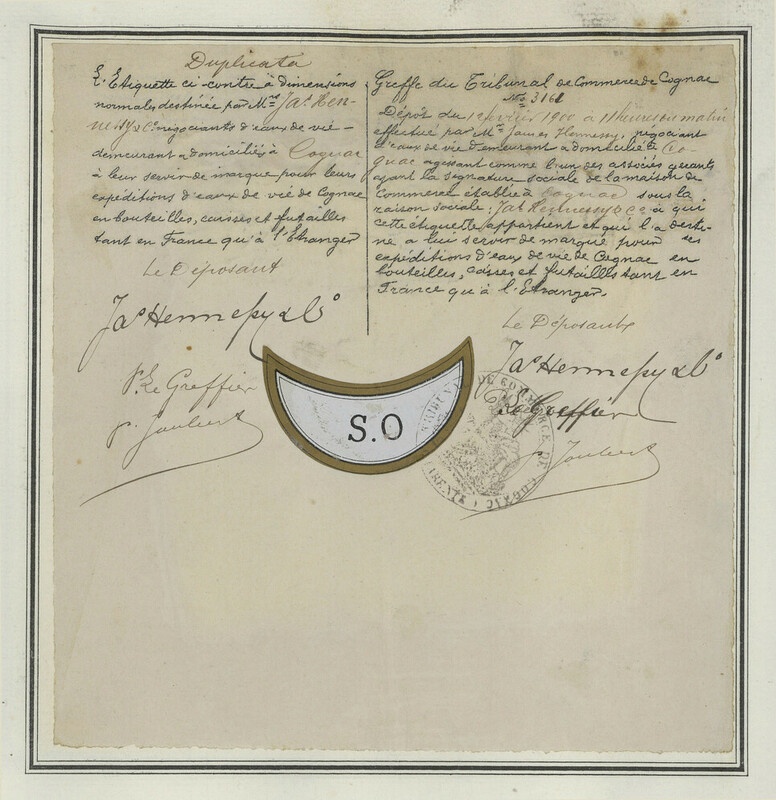 Duplicata
L'Etiquette ci-contre à dimensions
normales destinée par Mrs Jas Hen-
nessy & Co négociants d'eaux de vie –
demeurant & domiciliés à Cognac
à leur servir de marque pour leurs
expéditions d'eaux de vie de Cognac
en bouteilles, caisses et futailles
tant en France qu'à l'Etranger
Le Déposant
Jas Hennessy & Co
P. Le Greffier
P. Joubert
Greffe du Tribunal de Commerce de Cognac
No 3161
Dépôt du 1er février 1900 à 11 heures du matin
effectué par Mr James Hennessy, négociant
d'eaux de vie demeurant & domicilié à Co-
gnac agissant comme l'un des associés gérants
ayant la signature sociale de la maison de
Commerce établie à Cognac sous la
raison sociale: Jas Hennessy & Co à qui
cette étiquette appartient et qui l'a desti-
née à lui servir de marque pour ses
expéditions d'eaux de vie de Cognac en
bouteilles, caisses et futailles tant en
France qu'à l'Etranger.
Le Déposant
Jas Hennessy & Co
Le Greffier
P. Joubert
S.O
DE COMMERCE DE COGNAC